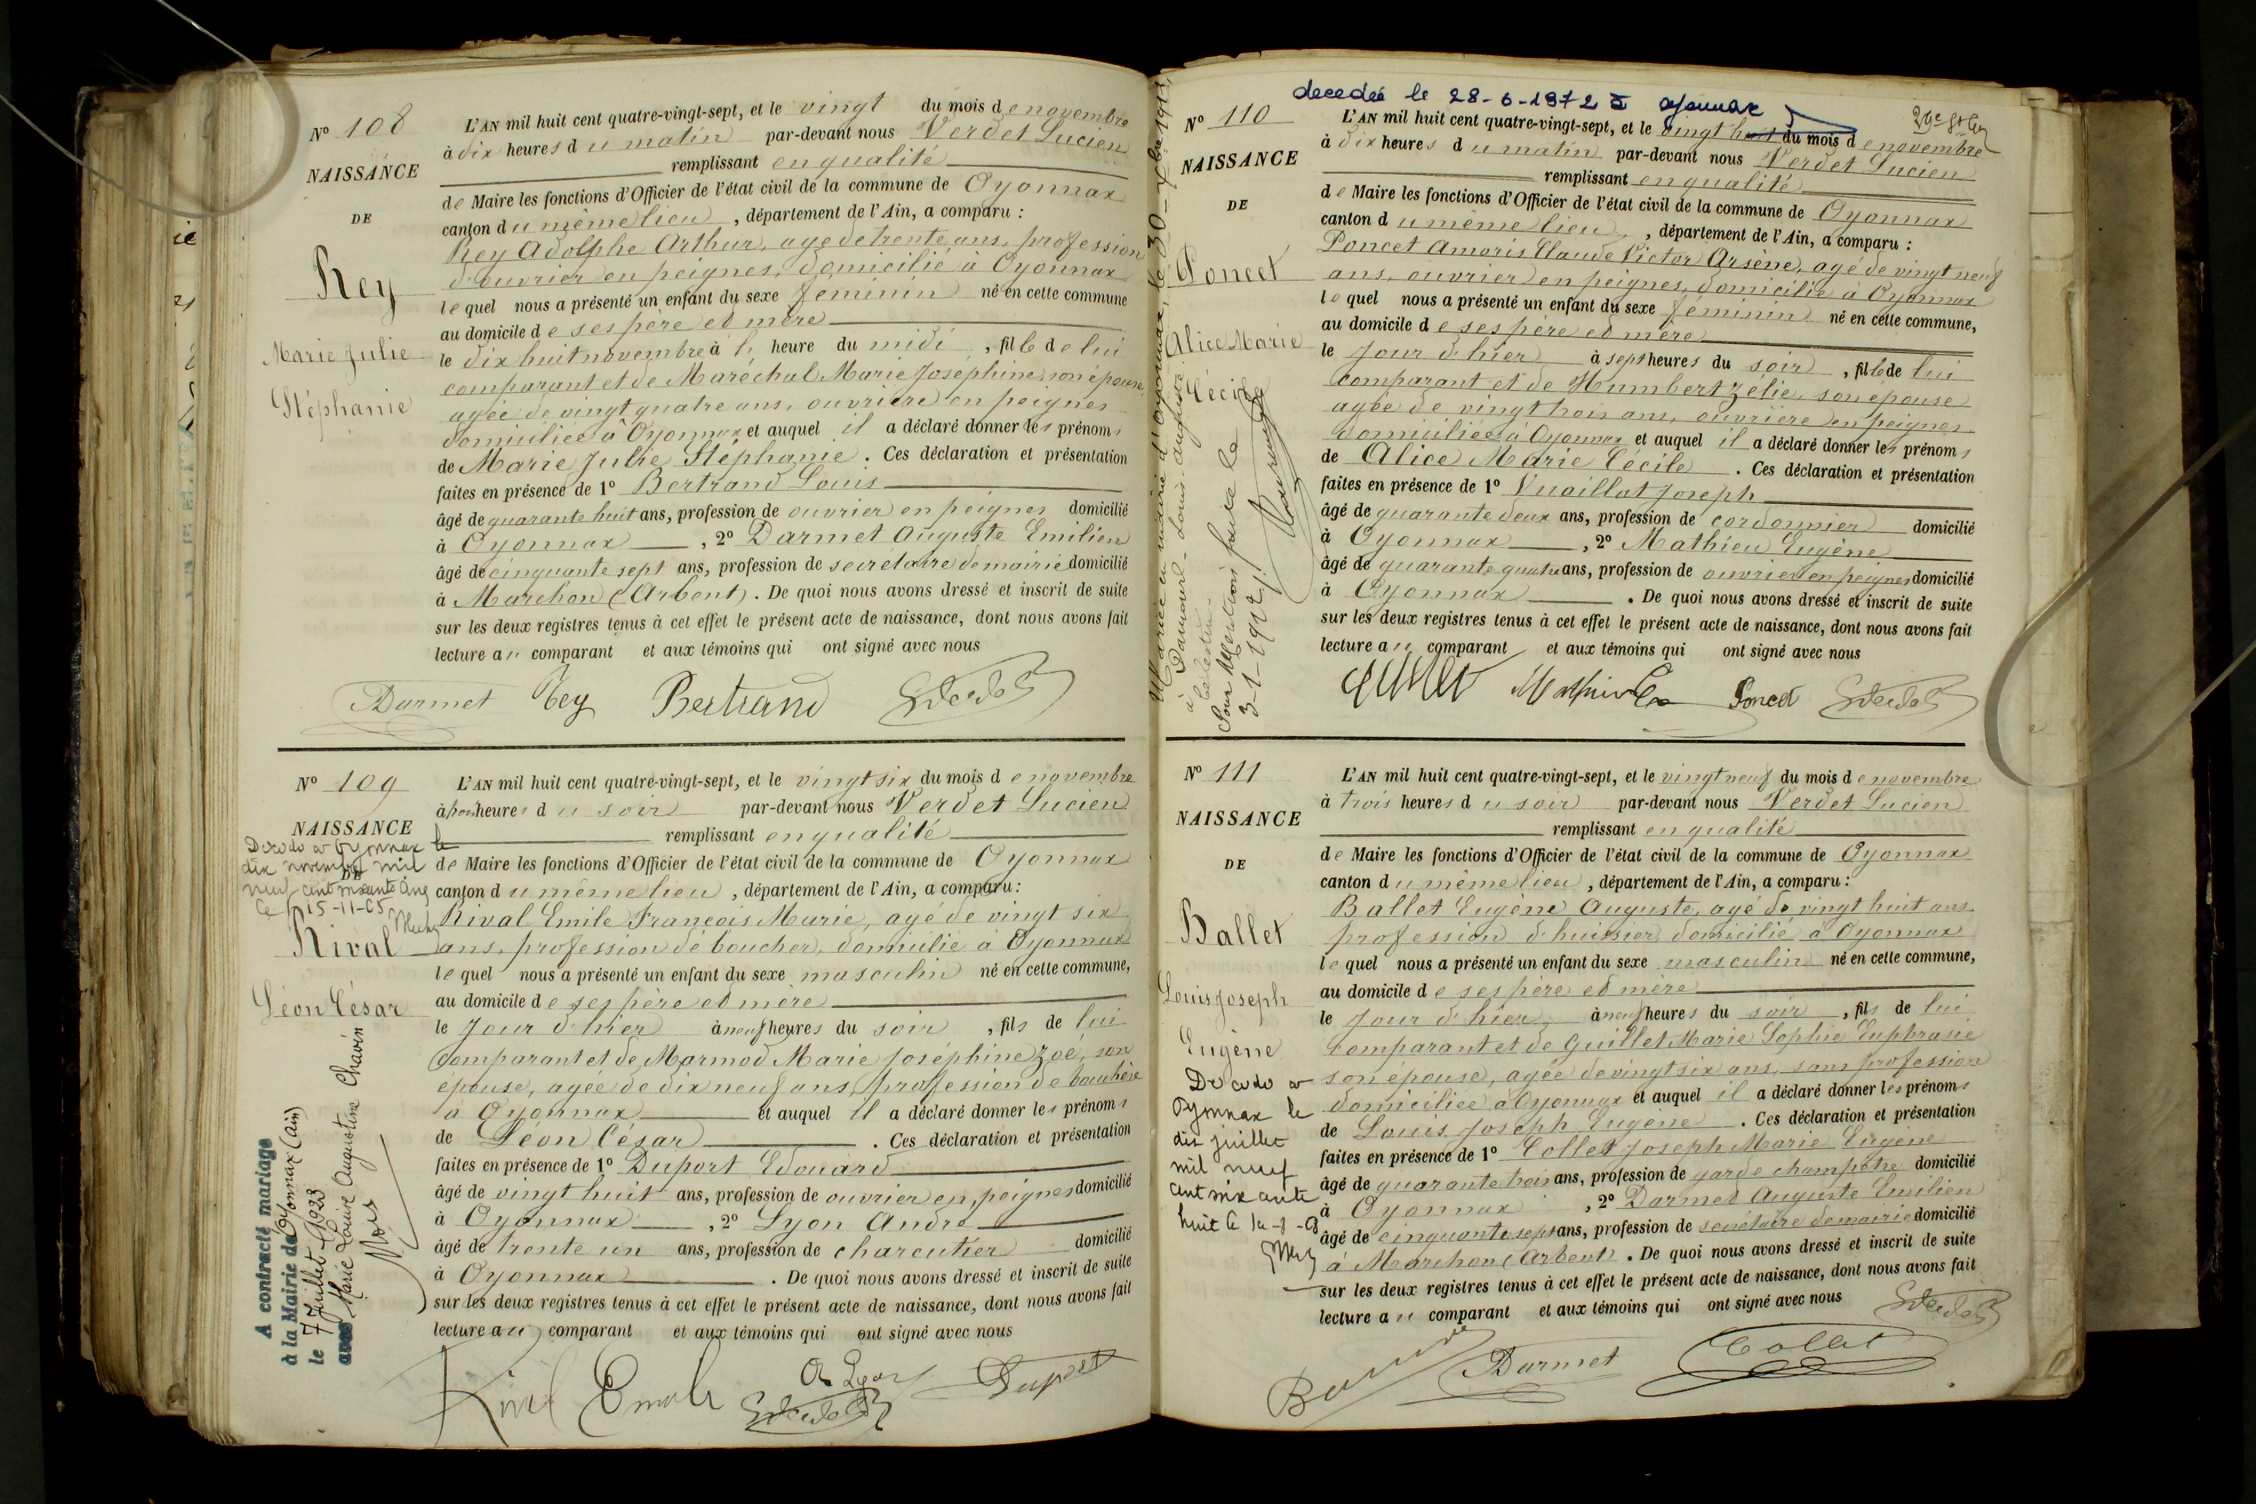 N° 108
NAISSANCE
DE
Rey
Marie Julie
Stéphanie
L'AN mil huit cent quatre-vingt-sept, et le vingt du mois de novembre
à dix heures du matin par-devant nous Verdet Lucien
remplissant en qualité
de Maire les fonctions d'Officier de l'état civil de la commune de Oyonnax
canton du même lieu, département de l'Ain, a comparu :
Rey Adolphe Arthur, agé de trente ans, profession
d'ouvrier en peignes, domicilié à Oyonnax
lequel nous a présenté un enfant du sexe féminin né en cette commune
au domicile de ses père et mère
le dix huit novembre à heure du midi, fille de lui
comparant et de Maréchal Marie Joséphine, son épouse
agée de vingt quatre ans, ouvrière en peignes
domiciliée à Oyonnax et auquel il a déclaré donner les prénoms
de Marie Julie Stéphanie. Ces déclaration et présentation
faites en présence de 1° Bertrand Louis
âgé de quarante huit ans, profession de ouvrier en peignes domicilié
à Oyonnax, 2° Darmet Auguste Emilien
âgé de cinquante sept ans, profession de secrétaire de mairie domicilié
à Marchon (Arbent). De quoi nous avons dressé et inscrit de suite
sur les deux registres tenus à cet effet le présent acte de naissance, dont nous avons fait
lecture au comparant et aux témoins qui ont signé avec nous
Darmet Rey Bertrand
N° 109
NAISSANCE
DE
Décédé à Oyonnax le
dix novembre mil
neuf cent soixante cinq
Ce 15-11-65
Rival
Léon César
A contracté mariage
à la Mairie de Oyonnax (Ain)
le 7 Juillet 1923
avec Marie Louise Augustine Chavin
L'AN mil huit cent quatre-vingt-sept, et le vingt six du mois de novembre
à heures du soir par-devant nous Verdet Lucien
remplissant en qualité
de Maire les fonctions d'Officier de l'état civil de la commune de Oyonnax
canton du même lieu, département de l'Ain, a comparu :
Rival Emile François Marie, agé de vingt six
ans, profession de boucher, domicilié à Oyonnax
lequel nous a présenté un enfant du sexe masculin né en cette commune,
au domicile de ses père et mère
le jour d'hier à neuf heures du soir, fils de lui
comparant et de Marmod Marie Joséphine Zoé, son
épouse, agée de dix neuf ans, profession de bouchère
à Oyonnax et auquel il a déclaré donner les prénoms
de Léon César. Ces déclaration et présentation
faites en présence de 1° Duport Edouard
âgé de vingt huit ans, profession de ouvrier en peignes domicilié
à Oyonnax, 2° Lyon André
âgé de trente un ans, profession de charcutier domicilié
à Oyonnax. De quoi nous avons dressé et inscrit de suite
sur les deux registres tenus à cet effet le présent acte de naissance, dont nous avons fait
lecture au comparant et aux témoins qui ont signé avec nous
Rival Emile A Lyon Duport
decedée le 28-6-1972 à oyonnax
N° 110
NAISSANCE
DE
Poncet
Alice Marie
Cécile
Mariée en mairie d'Oyonnax, le 30
Pour Mention faite le
3-1-1912
L'AN mil huit cent quatre-vingt-sept, et le vingt huit du mois de novembre
à dix heures du matin par-devant nous Verdet Lucien
remplissant en qualité
de Maire les fonctions d'Officier de l'état civil de la commune de Oyonnax
canton du même lieu, département de l'Ain, a comparu :
Poncet Amoris Claude Victor Arsène, agé de vingt neuf
ans, ouvrier en peignes, domicilié à Oyonnax
lequel nous a présenté un enfant du sexe féminin né en cette commune,
au domicile de ses père et mère
le jour d'hier à sept heures du soir, fille de lui
comparant et de Humbert Zélie, son épouse
agée de vingt trois ans, ouvrière en peignes
domiciliée à Oyonnax et auquel il a déclaré donner les prénoms
de Alice Marie Cécile. Ces déclaration et présentation
faites en présence de 1° Vuaillat Joseph
âgé de quarante deux ans, profession de cordonnier domicilié
à Oyonnax, 2° Mathieu Eugène
âgé de quarante quatre ans, profession de ouvrier en peignes domicilié
à Oyonnax. De quoi nous avons dressé et inscrit de suite
sur les deux registres tenus à cet effet le présent acte de naissance, dont nous avons fait
lecture au comparant et aux témoins qui ont signé avec nous
Poncet
N° 111
NAISSANCE
DE
Ballet
Louis Joseph
Eugène
Décédé à
Oyonnax le
dix juillet
mil neuf
cent soixante
huit
L'AN mil huit cent quatre-vingt-sept, et le vingt neuf du mois de novembre
à trois heures du soir par-devant nous Verdet Lucien
remplissant en qualité
de Maire les fonctions d'Officier de l'état civil de la commune de Oyonnax
canton du même lieu, département de l'Ain, a comparu :
Ballet Eugène Auguste, agé de vingt huit ans
profession d'huissier, domicilié à Oyonnax
lequel nous a présenté un enfant du sexe masculin né en cette commune,
au domicile de ses père et mère
le jour d'hier à neuf heures du soir, fils de lui
comparant et de Guillet Marie Sophie Euphrasie
son épouse, agée de vingt six ans, sans profession
domiciliée à Oyonnax et auquel il a déclaré donner les prénoms
de Louis Joseph Eugène. Ces déclaration et présentation
faites en présence de 1° Collet Joseph Marie Eugène
âgé de quarante trois ans, profession de garde champêtre domicilié
à Oyonnax, 2° Darmet Auguste Emilien
âgé de cinquante sept ans, profession de secrétaire de mairie domicilié
à Marchon (Arbent). De quoi nous avons dressé et inscrit de suite
sur les deux registres tenus à cet effet le présent acte de naissance, dont nous avons fait
lecture au comparant et aux témoins qui ont signé avec nous
Darmet Collet